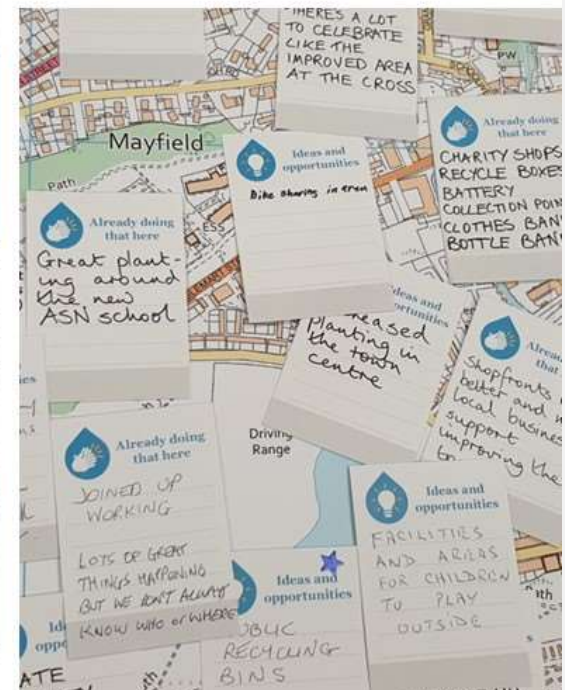 THERE'S A LOT
TO CELEBRATE
LIKE THE
IMPROVED AREA
AT THE CROSS
PW
Mayfield
Path
ESS
Ideas and
opportunities
Bike sharing in
Already doing
that here
CHARITY SHOPS
RECYCLE BOXES
BATTERY
COLLECTION POIN
CLOTHES BAN
BOTTLE BAN
Already doing
that here
Great plant-
ing around
the new
ASN school
Ideas and
opportunities
reased
planting in
the town
centre
Alrea
that
Shopfronts
better and
local busines
support
improving the
Already doing
that here
JOINED UP
WORKING
LOTS OF GREAT
THINGS HAPPENING
BUT WE DON'T ALWAYS
KNOW WHO or WHERE
Driving
Range
Ideas and
opportunities
FACILITIES
AND AREAS
FOR CHILDREN
TO PLAY
OUTSIDE
Ideas and
opportunities
PUBLIC
RECYCLING
BINS